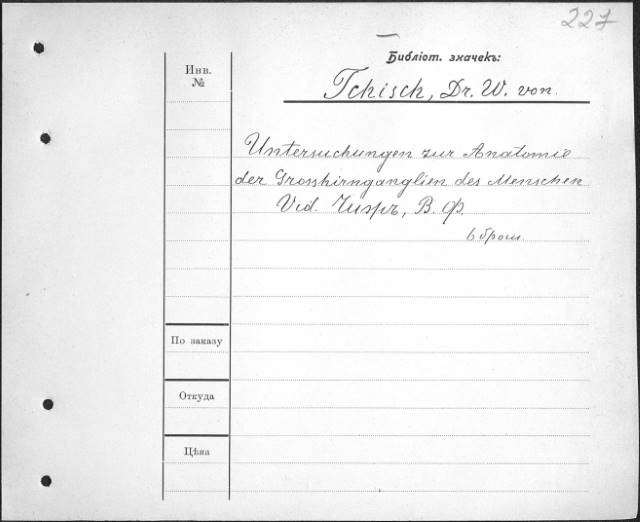 227
Библіот. значекъ:
Инв.
№
Tchisch, Dr. W. von.
Untersuchungen zur Anatomie
der Grosshirnganglien des Menschen
Vid. Чижъ, В. Ф.
брош.
По заказу
Откуда
Цѣна